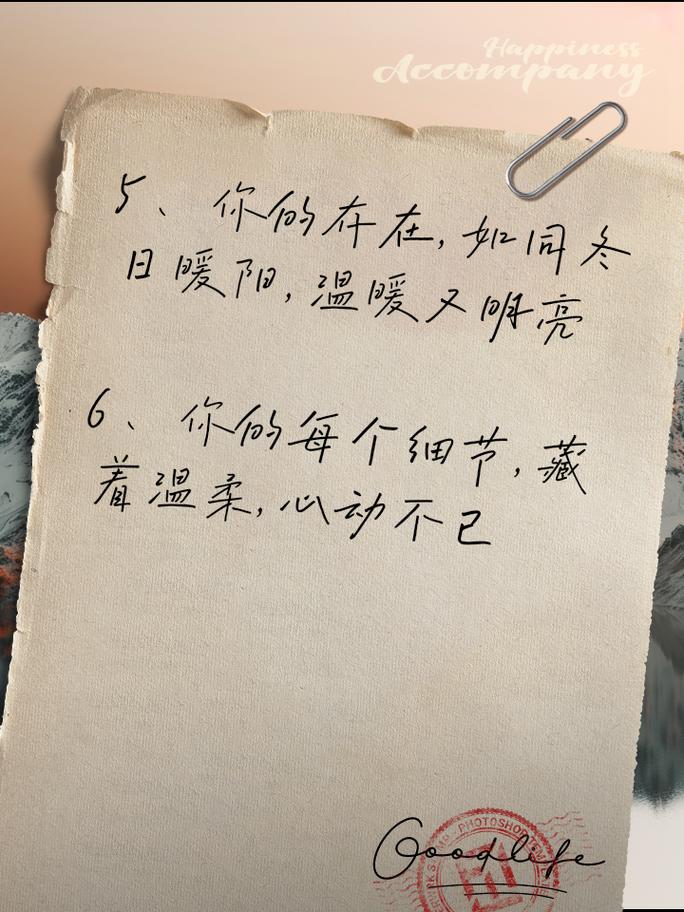 Happiness
Accompany
5、你的存在,如同冬
日暖阳,温暖又明亮
6、你的每个细节,藏
着温柔,心动不已
PHOTOSHOP
Goodlife